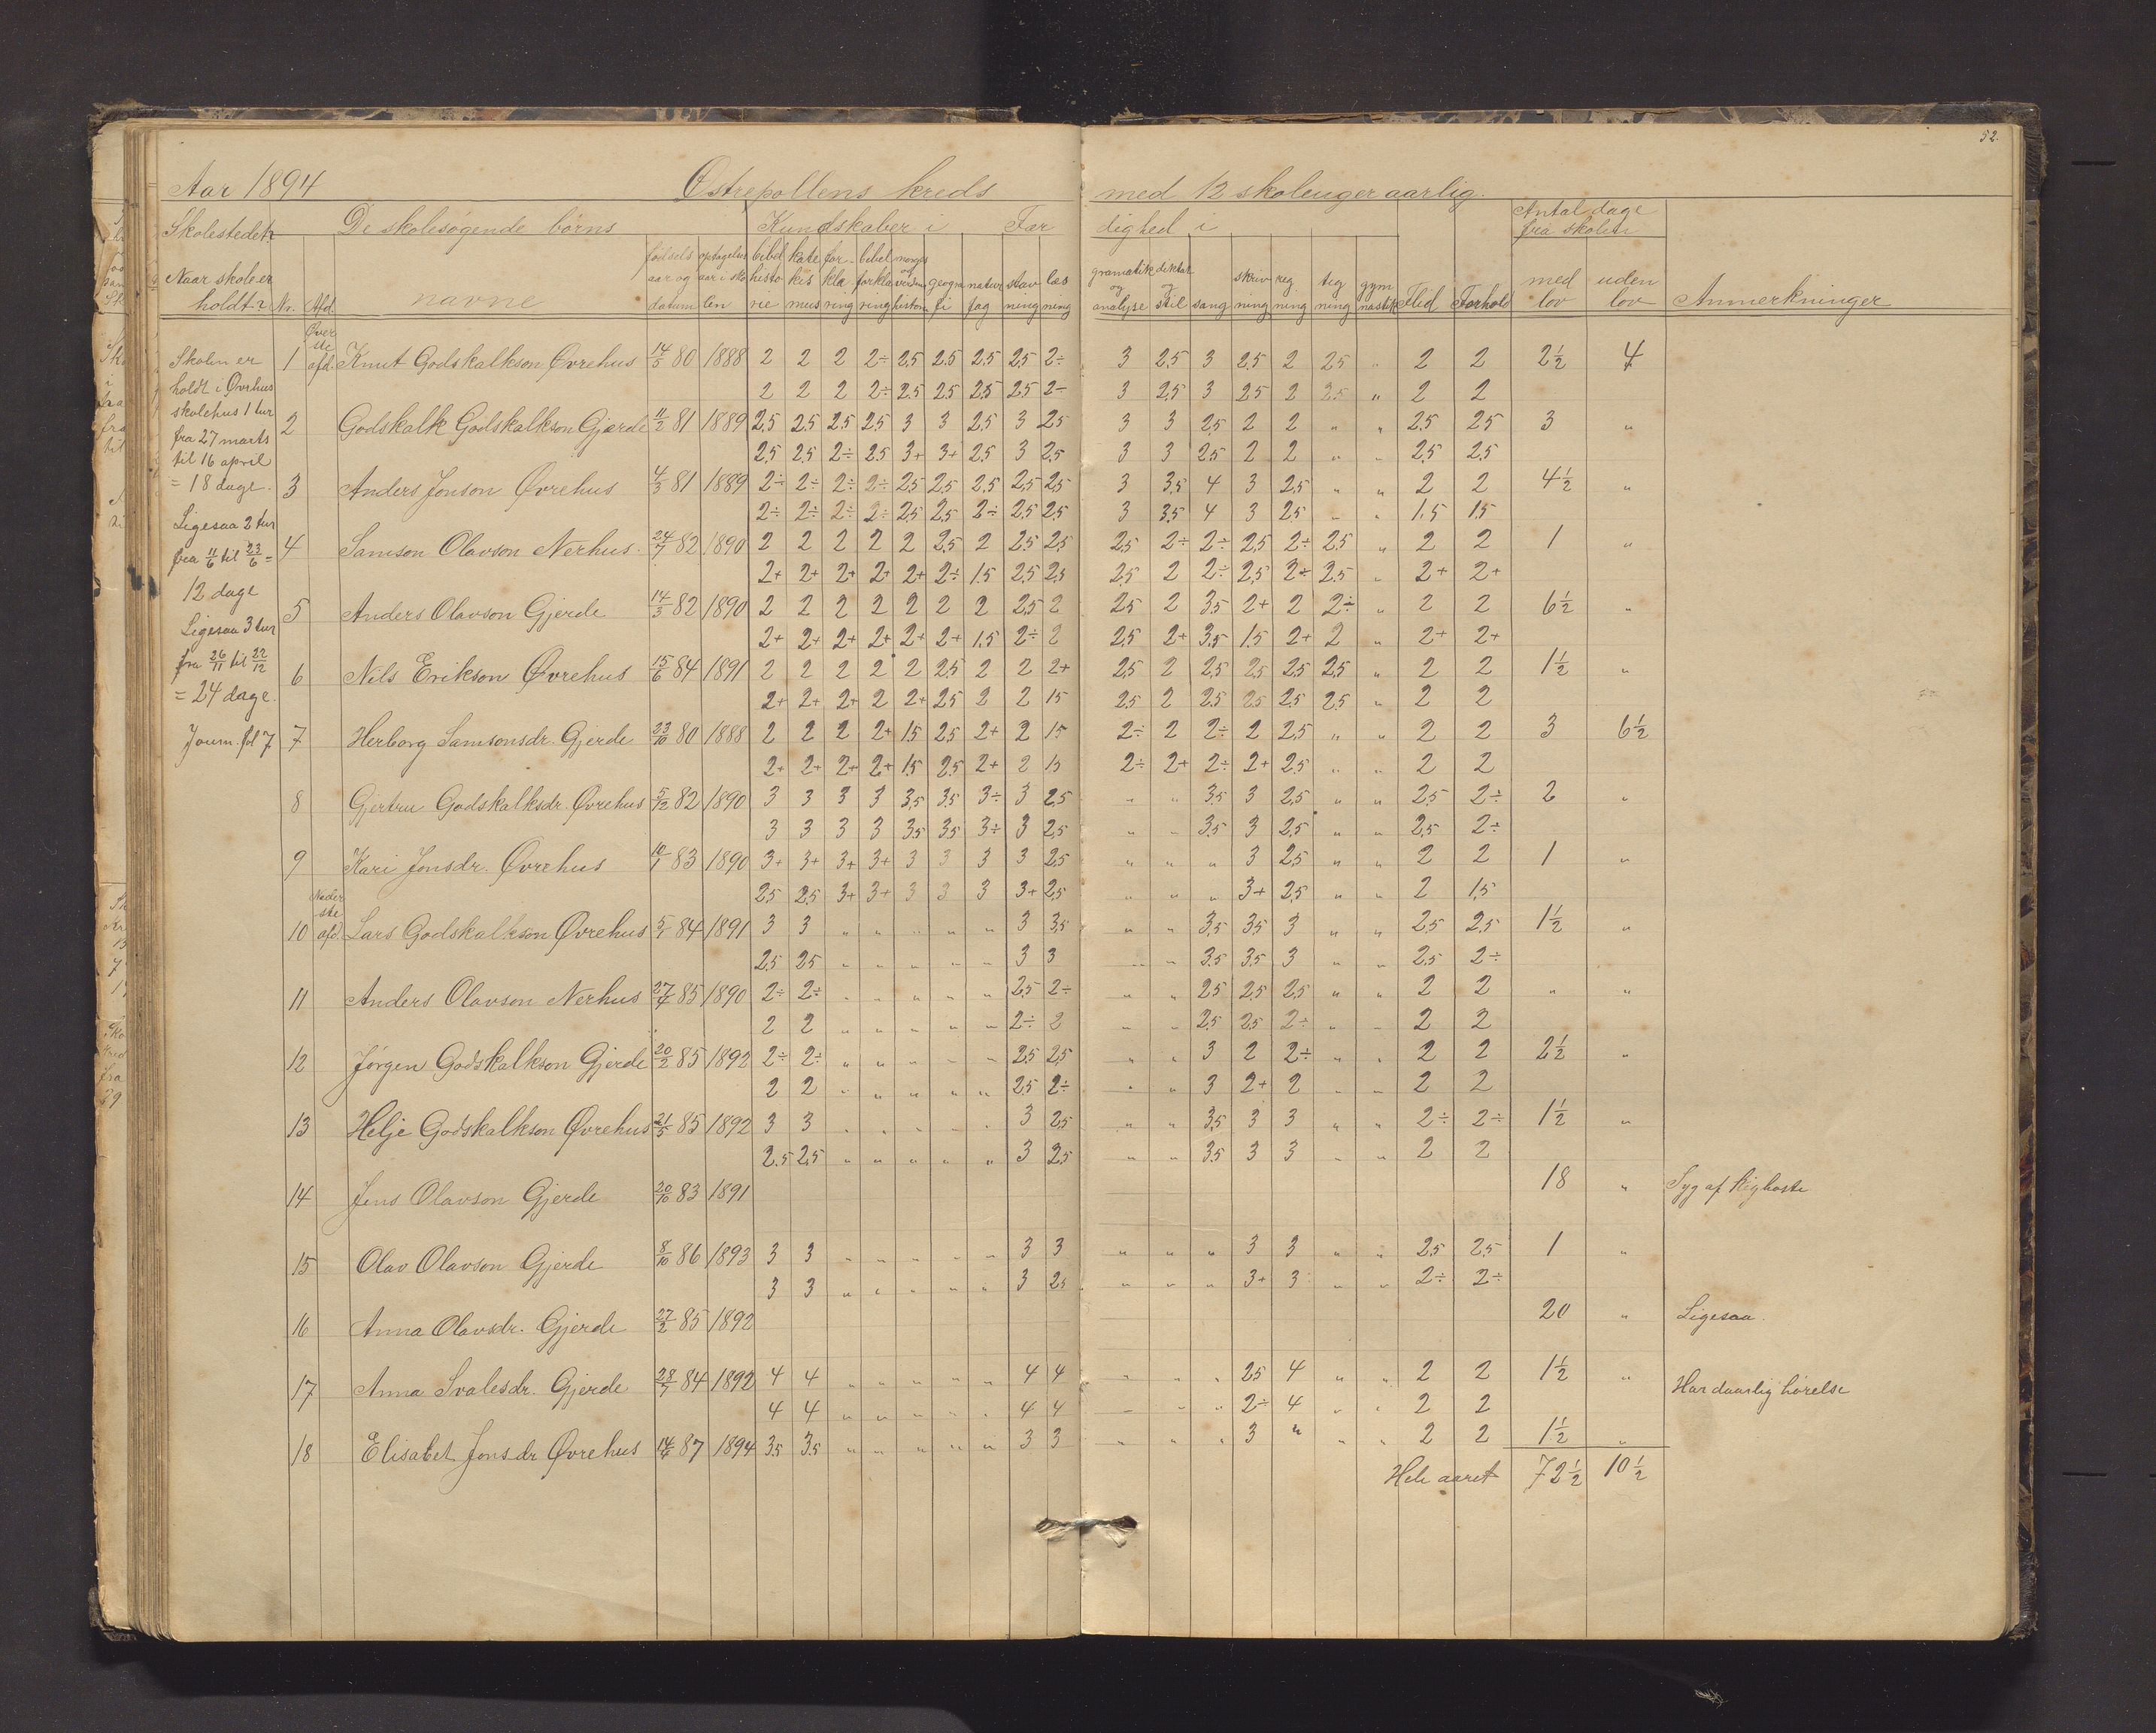 52.
Aar 1894 Østrepollens kreds med 12 skoleuger aarlig.
Skolestedet De skolesøgende børns Kundskaber i Færdighed i Antal dage fra skolen
Naar skole er holdt Nr. Afd. navne fødsels aar og datum optagelses aar i skolen bibel historie katekismus forklaring bibel forklaring norges og verdens historie geografi natur fag stavning læsning gramatik og analyse diktat og stil sang skrivning regning tegning gymnastik Flid Forhold med lov uden lov Anmerkninger
Øverste afd.
1 Knut Godskalkson Øvrehus 14/5 80 1888 2 2 2 2÷ 2,5 2,5 2,5 2,5 2÷ 3 2,5 3 2,5 2 2,5 " 2 2 2½ 4
2 2 2 2÷ 2,5 2,5 2,5 2,5 2- 3 2,5 3 2,5 2 2,5 " 2 2
2 Godskalk Godskalkson Gjærde 11/2 81 1889 2,5 2,5 2,5 2,5 3 3 2,5 3 2,5 3 3 2,5 2 2 " " 2,5 2,5 3 "
2,5 2,5 2÷ 2,5 3+ 3+ 2,5 3 2,5 3 3 2,5 2 2 " " 2,5 2,5
3 Anders Jonson Øvrehus 4/3 81 1889 2÷ 2÷ 2÷ 2÷ 2,5 2,5 2,5 2,5 2,5 3 3,5 4 3 2,5 " " 2 2 4½ "
2÷ 2÷ 2÷ 2÷ 2,5 2,5 2÷ 2,5 2,5 3 3,5 4 3 2,5 " " 1,5 1,5
4 Samson Olavson Nerhus 24/7 82 1890 2 2 2 2 2 2,5 2 2,5 2,5 2,5 2÷ 2÷ 2,5 2÷ 2,5 " 2 2 1 "
2+ 2+ 2+ 2+ 2+ 2÷ 1,5 2,5 2,5 2,5 2 2÷ 2,5 2÷ 2,5 " 2+ 2+
5 Anders Olavson Gjerde 14/3 82 1890 2 2 2 2 2 2 2 2,5 2 2,5 2 3,5 2+ 2 2÷ " 2 2 6½ "
2+ 2+ 2+ 2+ 2+ 2+ 1,5 2÷ 2 2,5 2+ 3,5 1,5 2+ 2 " 2+ 2+
6 Nils Erikson Øvrehus 15/6 84 1891 2 2 2 2 2 2,5 2 2 2+ 2,5 2 2,5 2,5 2,5 2,5 " 2 2 1½ "
2+ 2+ 2+ 2 2+ 2,5 2 2 1,5 2,5 2 2,5 2,5 2,5 2,5 " 2 2
7 Herborg Samsonsdr. Gjerde 23/10 80 1888 2 2 2 2+ 1,5 2,5 2+ 2 1,5 2÷ 2 2÷ 2 2,5 " " 2 2 3 6½
2+ 2+ 2+ 2+ 1,5 2,5 2+ 2 1,5 2÷ 2+ 2÷ 2+ 2,5 " " 2 2
8 Gjertru Godskalksdr. Øvrehus 5/12 82 1890 3 3 3 3 3,5 3,5 3÷ 3 2,5 " " 3,5 3 2,5 " " 2,5 2÷ 2 "
3 3 3 3 3,5 3,5 3÷ 3 2,5 " " 3,5 3 2,5 " " 2,5 2÷
9 Kari Jonsdr. Øvrehus 10/1 83 1890 3+ 3+ 3+ 3+ 3 3 3 3 2,5 " " " 3 2,5 " " 2 2 1 "
2,5 2,5 3+ 3+ 3 3 3 3+ 2,5 " " " 3+ 2,5 " " 2 1,5
Nederste afd.
10 Lars Godskalkson Øvrehus 5/1 84 1891 3 3 " " " " " 3 3,5 " " 3,5 3,5 3 " " 2,5 2,5 1½ "
2,5 2,5 " " " " " 3 3 " " 3,5 3,5 3 " " 2,5 2÷
11 Anders Olavson Nerhus 27/4 85 1890 2÷ 2÷ " " " " " 2,5 2÷ " " 2,5 2,5 2,5 " " 2 2 " "
2 2 " " " " " 2÷ 2 " " 2,5 2,5 2÷ " " 2 2
12 Jørgen Godskalkson Gjerde 20/2 85 1892 2÷ 2÷ " " " " " 2,5 2,5 " " 3 2 2÷ " " 2 2 2½ "
2 2 " " " " " 2,5 2÷ " " 3 2+ 2 " " 2 2
13 Helje Godskalkson Øvrehus 21/5 85 1892 3 3 " " " " " 3 2,5 " " 3,5 3 3 " " 2÷ 2÷ 1½ "
2,5 2,5 " " " " " 3 2,5 " " 3,5 3 3 " " 2 2
14 Jens Olavson Gjerde 20/10 83 1891 18 " Syg af kighoste
15 Olav Olavson Gjerde 8/10 86 1893 3 3 " " " " " 3 3 " " " 3 3 " " 2,5 2,5 1 "
3 3 " " " " " 3 2,5 " " " 3+ 3 " " 2÷ 2÷
16 Anna Olavsdr. Gjerde 27/2 85 1892 20 " Ligesaa.
17 Anna Svalesdr. Gjerde 28/7 84 1892 4 4 " " " " " 4 4 " " " 2,5 4 " " 2 2 1½ " Har daarlig hørelse
4 4 " " " " " 4 4 " " " 2÷ 4 " " 2 2
18 Elisabet Jonsdr Øvrehus 87 1894 3,5 3,5 " " " " " 3 3 " " " 3 " " " 2 2 1½ "
Hele aaret 72½ 10½
Skolen er
holdt i Øvrhus
skolehus 1 tur
fra 27 marts
til 16 april
= 18 dage.
Ligesaa 2 tur
fra 11/6 til 23/6 =
12 dage
Ligesaa 3 tur
fra 26/11 til 22/12
= 24 dage.
Journ. fol 7